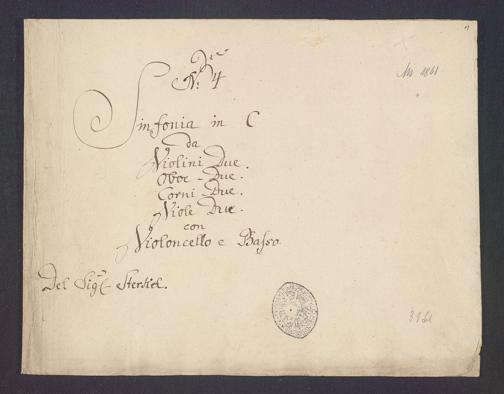 N: 4
Sinfonia in C
da
Violini Due.
Oboe - Due.
Corni Due.
Viole Due.
con
Violoncello e Basso
Del Sigr. Sterkel.
Ms 1861